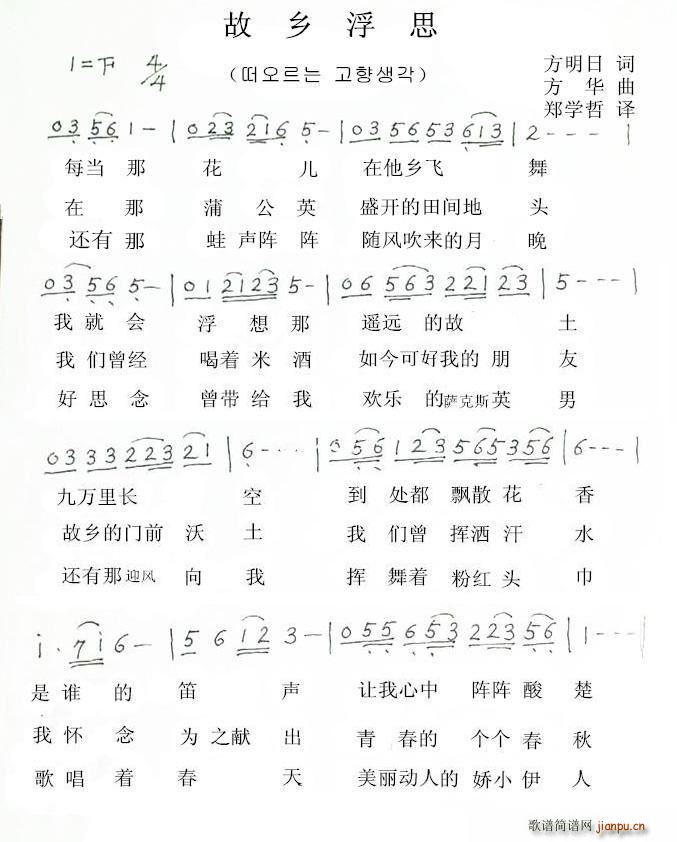 故乡浮思
1=F 4/4
(떠오르는 고향생각)
方明日 词
方 华 曲
郑学哲 译
03 56 1 - | 023 216 5 - | 035 6 5 53 613 | 2 - - - |
每当那 花 儿 在他乡飞 舞
在 那 蒲 公 英 盛开的田间地 头
还有那 蛙声阵 阵 随风吹来的月 晚
03 56 5 - | 01 2123 5 - | 06 563 221 23 | 5 - - - |
我 就 会 浮 想 那 遥远 的故 土
我 们曾经 喝着 米 酒 如今可好我的 朋 友
好 思 念 曾带 给 我 欢乐 的萨克斯英 男
03 33 223 21 | 6 - · · · | 056 123 565 356 | 6 - - - |
九万里长 空 到 处都 飘散花 香
故乡的门前 沃 土 我 们曾 挥洒汗 水
还有那迎风 向 我 挥 舞着 粉红头 巾
i · 7i 6 - | 5 6 12 3 - | 055 653 223 56 | 1 - - - |
是谁的 笛 声 让我心中 阵阵酸 楚
我 怀 念 为 之献 出 青 春的 个个春 秋
歌唱着 春 天 美丽动人的 娇小伊 人
歌谱简谱网 jianpu.cn